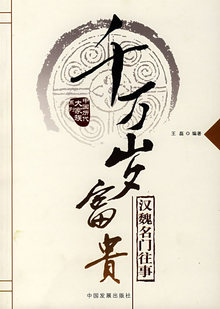 千万岁富贵
中国历代
大家族
王磊 编著
汉魏名门往事
中国发展出版社